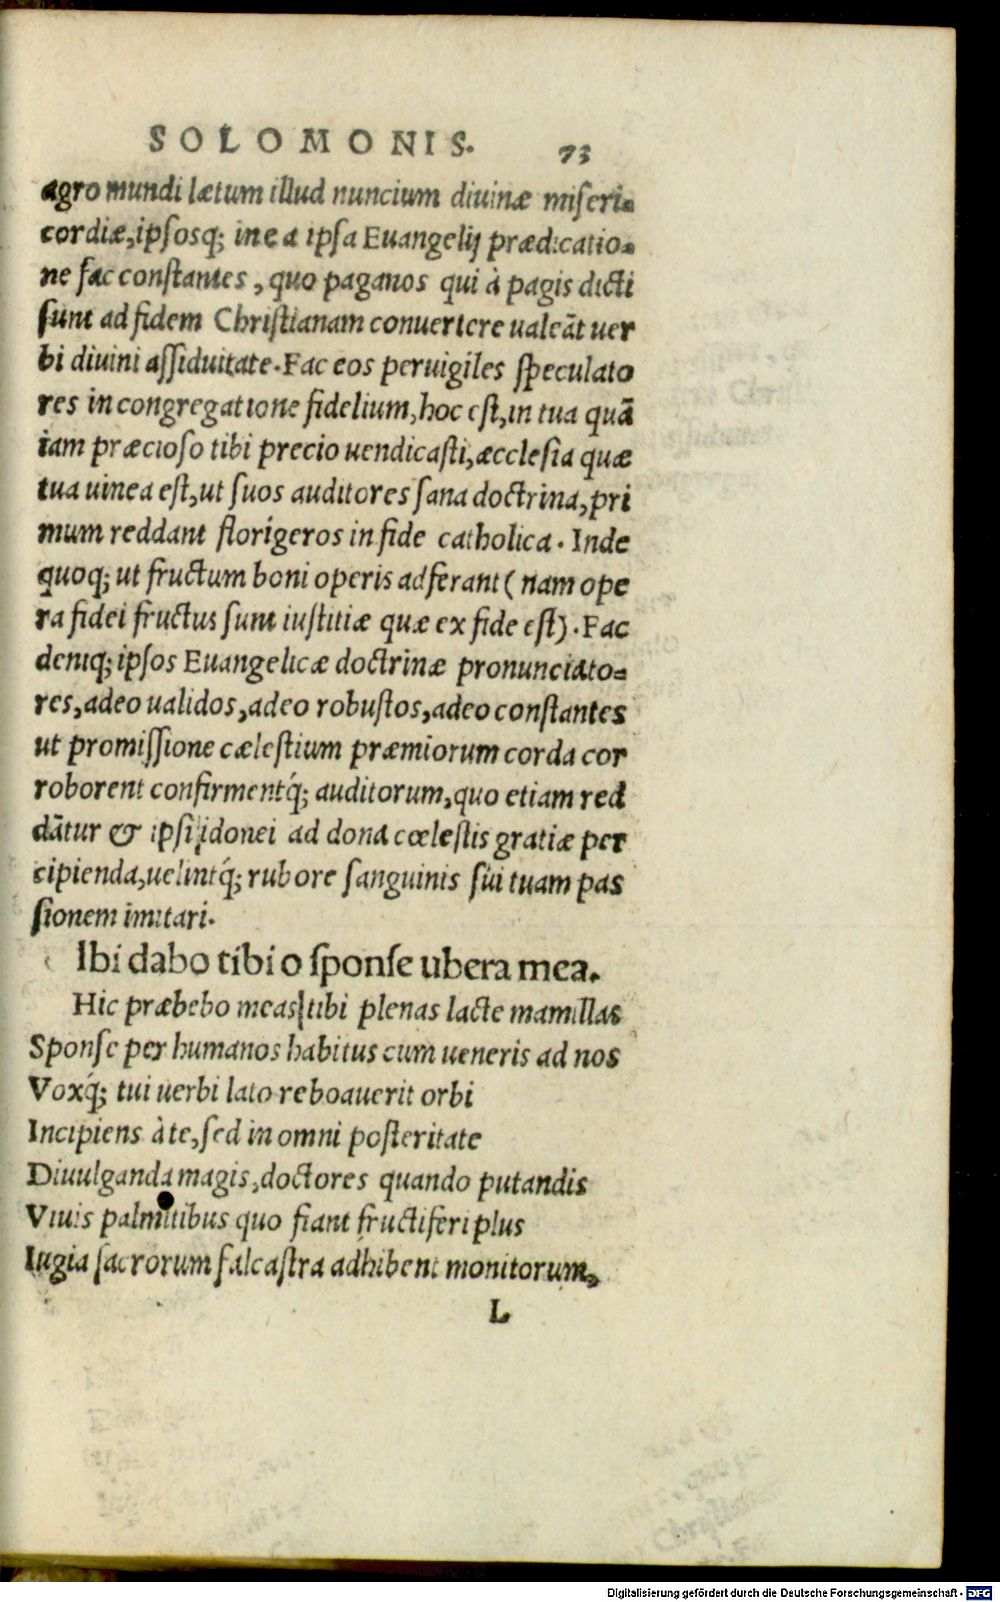 SOLOMONIS. 73
agro mundi lætum illud nuncium diuinæ miseri-
cordiæ, ipsosq; in ea ipsa Euangelij prædicatio-
ne fac constantes, quo paganos qui à pagis dicti
sunt ad fidem Christianam conuertere ualeāt uer
bi diuini assiduitate. Fac eos peruigiles speculato
res in congregatione fidelium, hoc est, in tua quā
iam præcioso tibi precio uendicasti, æcclesia quæ
tua uinea est, ut suos auditores sana doctrina, pri
mum reddant florígeros in fide catholica. Inde
quoq; ut fructum boni operis adferant (nam ope
ra fidei fructus sunt iustitiæ quæ ex fide est). Fac
deniq; ipsos Euangelicæ doctrinæ pronunciato-
res, adeo ualidos, adeo robustos, adeo constantes
ut promissione cælestium præmiorum corda cor
roborent confirmentq́; auditorum, quo etiam red
dātur & ipsi idonei ad dona cœlestis gratiæ per
cipienda, uelintq́; rubore sanguinis sui tuam pas
sionem imitari.
Ibi dabo tibi o sponse ubera mea.
Hic præbebo meas tibi plenas lacte mamillas
Sponse per humanos habitus cum ueneris ad nos
Voxq́; tui uerbi lato reboauerit orbi
Incipiens à te, sed in omni posteritate
Diuulganda magis, doctores quando putandis
Viuis palmitibus quo fiant fructiferi plus
Iugia sacrorum falcastra adhibent monitorum,
L
Digitalisierung gefördert durch die Deutsche Forschungsgemeinschaft - DFG